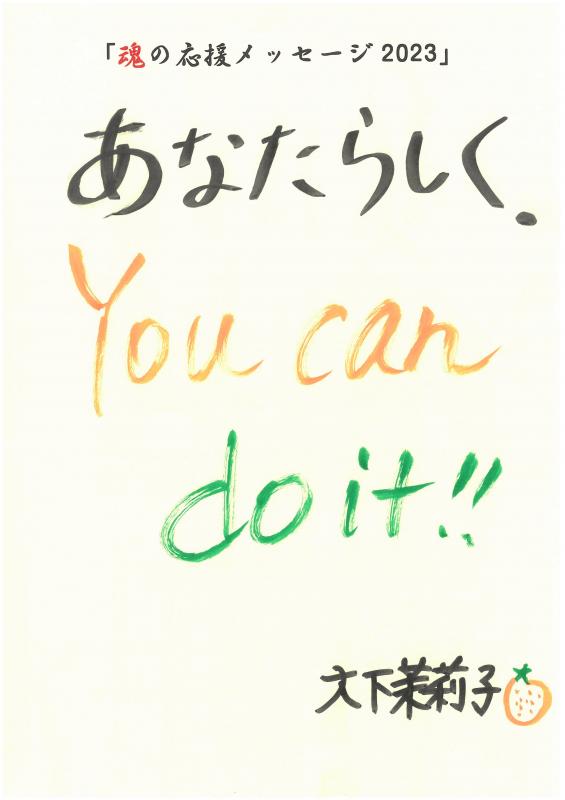 「魂の応援メッセージ2023」
あなたらしく.
You can
do it!!
大下茉莉子